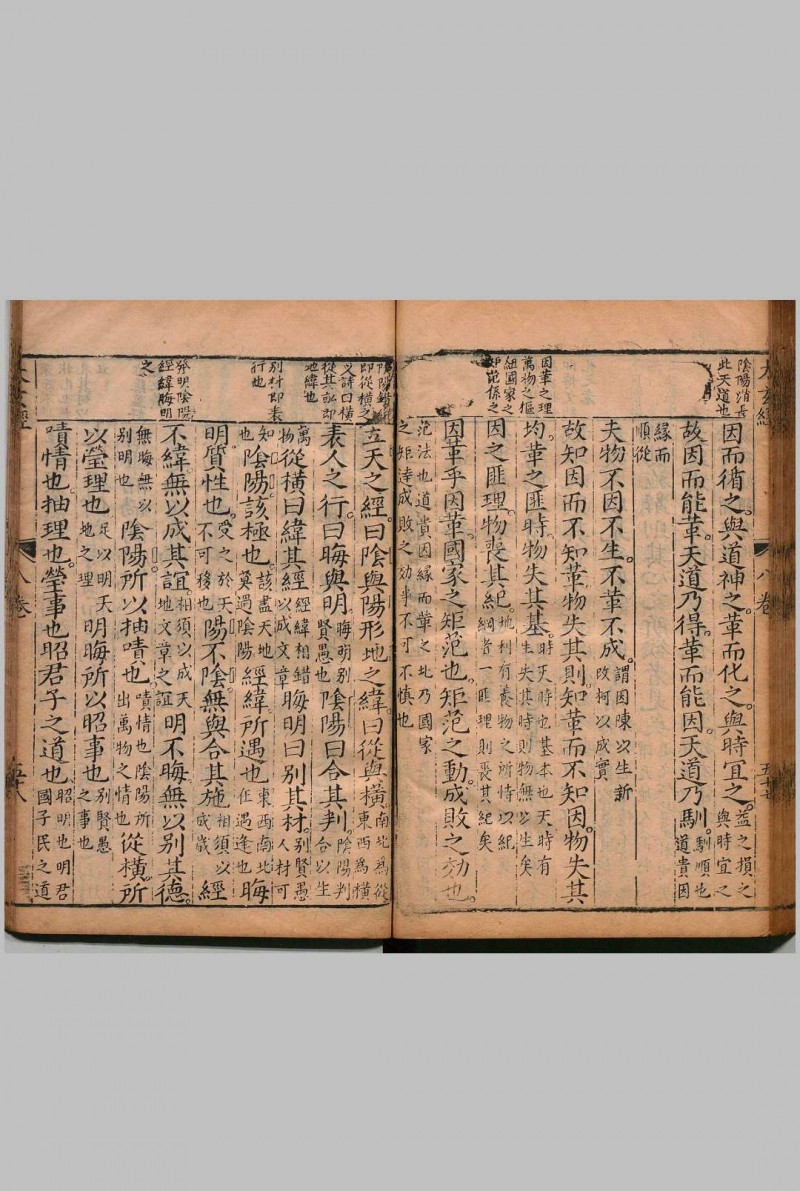 太玄經
八卷
五十七
陰陽消長
此天道也
因而循之與道神之革而化之與時宜之益之損之與時宜之
故因而能革天道乃得革而能因天道乃馴馴順也道貴因
緣而順從
夫物不因不生不革不成謂因陳以生新改柯以成實
故知因而不知革物失其則知革而不知因物失其
因革之理
萬物之樞
紐國家之
矩範係之
均革之匪時物失其基時天時也基本也天時有生失其時則物無以生矣
因之匪理物喪其紀地利有養物之所恃以紀綱者一匪理則喪其紀矣
因革乎因革國家之矩范也矩范之動成敗之効也
范法也道貴因緣而革之此乃國家之矩達成敗之効事不可不慎也
陰陽錯綜
即從橫之
又詩曰橫
從其訟却
地緯也
立天之經曰陰與陽形地之緯曰從與橫南北為從東西為橫
表人之行曰晦與明晦明別賢愚也陰陽曰合其判陰陽判合以生
萬物從橫曰緯其經經緯相錯以成文章晦明曰別其材別賢愚人材可
別材即表
行也
知也陰陽該極也該盡天地莫過陰陽經緯所遇也東西南北任遇逢也晦
明質性也受之於天不可移也陽不陰無與合其施相須以成歲經
不緯無以成其誼相須以成天地文章之誼明不晦無以別其德
發明陰陽
經緯晦明
之
無晦無以別明也陰陽所以抽嘖也嘖情也陰陽所出萬物之情也從橫所
以瑩理也足以明天地之理明晦所以昭事也別賢愚之事也
嘖情也抽理也瑩事也昭君子之道也昭明也明君國子民之道
八卷
五十八